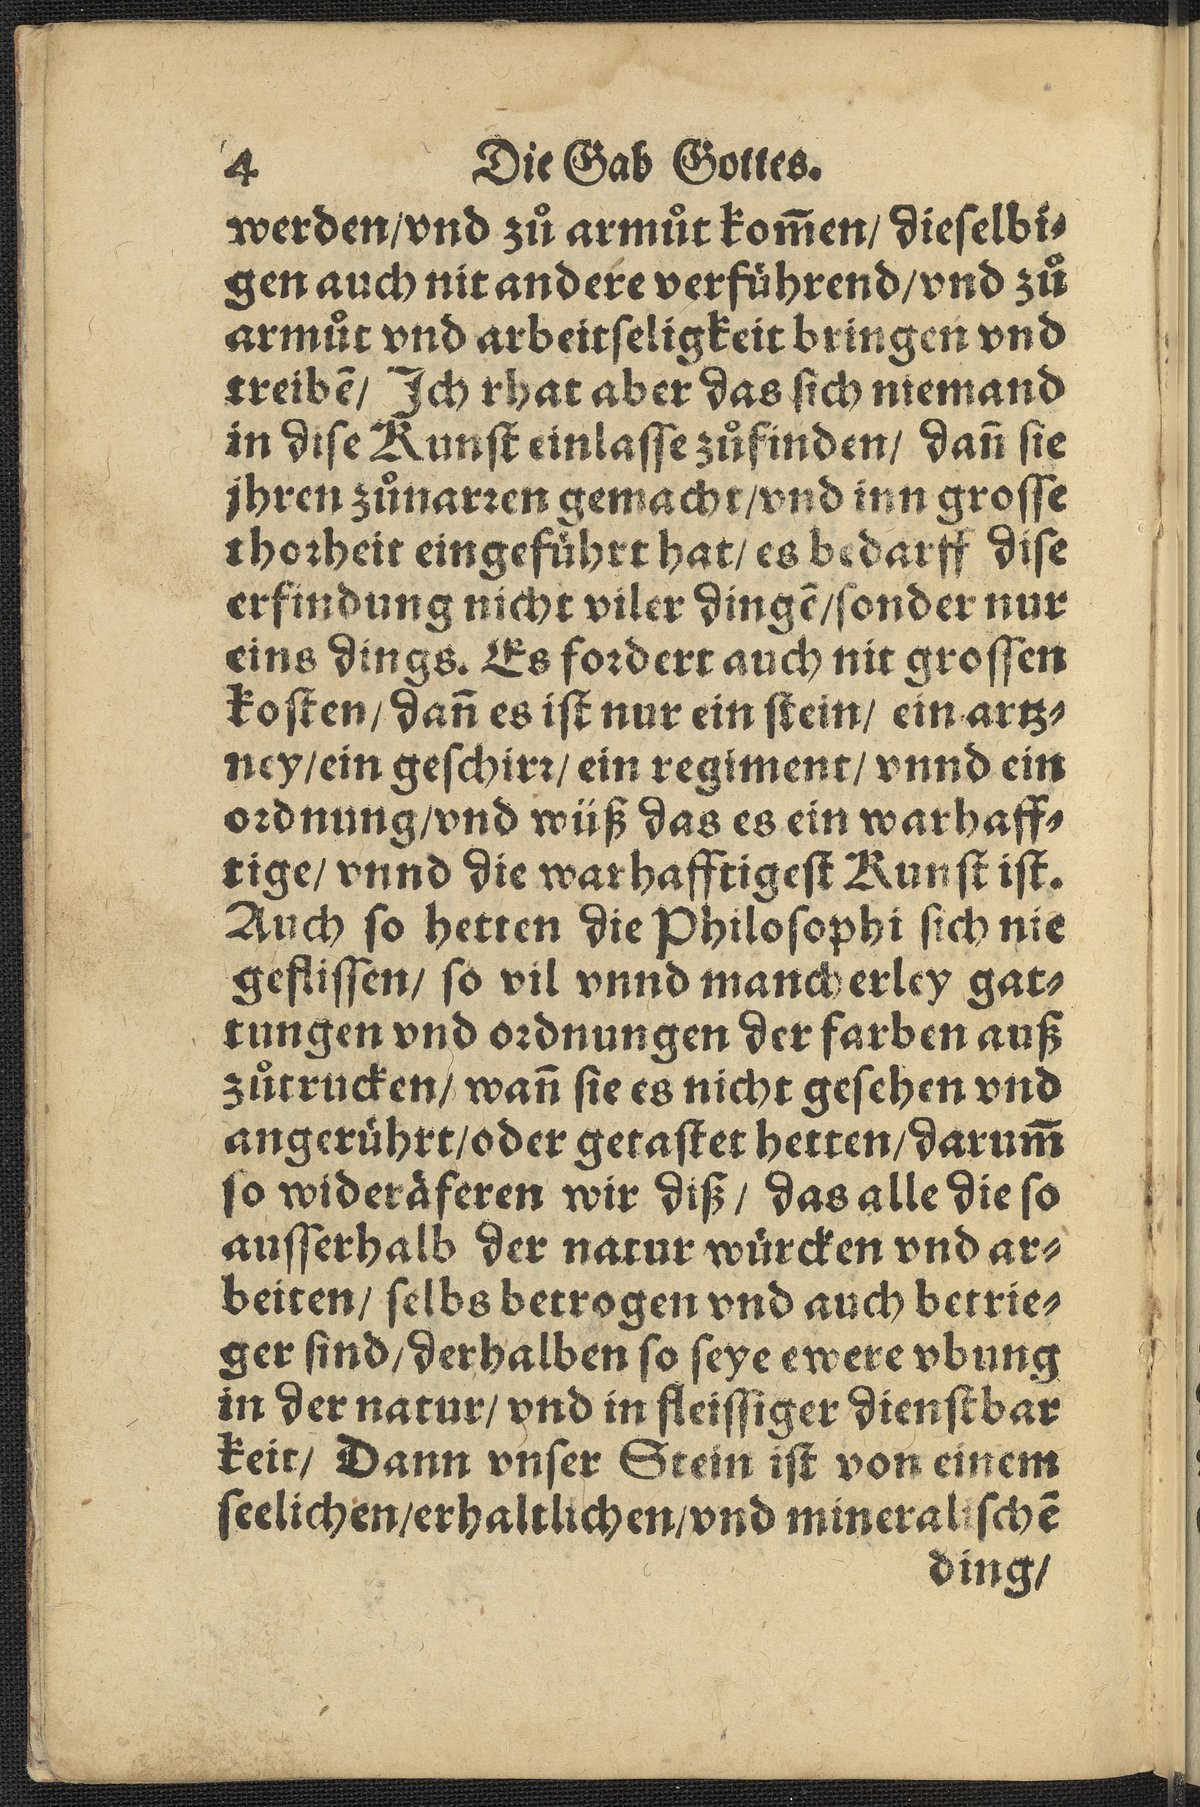 4 Die Gab Gottes.
werden/vnd zů armůt kom̄en/ dieselbi⸗
gen auch nit andere verführend/vnd zů
armůt vnd arbeitseligkeit bringen vnd
treibē/ Ich rhat aber das sich niemand
in dise Kunst einlasse zůfinden/ dañ sie
jhren zůnarren gemacht/vnd inn grosse
thorheit eingeführt hat/ es bedarff dise
erfindung nicht viler dingē/sonder nur
eins dings. Es fordert auch nit grossen
kosten/ dañ es ist nur ein stein/ ein artz⸗
ney/ein geschirr/ ein regiment/ vnnd ein
ordnung/vnd wüß das es ein warhaff⸗
tige/ vnnd die warhafftigest Kunst ist.
Auch so hetten die Philosophi sich nie
geflissen/ so vil vnnd mancherley gat⸗
tungen vnd ordnungen der farben auß
zůtrucken/ wañ sie es nicht gesehen vnd
angerührt/oder getastet hetten/darum̄
so wideräferen wir diß/ das alle die so
ausserhalb der natur würcken vnd ar⸗
beiten/ selbs betrogen vnd auch betrie⸗
ger sind/derhalben so seye ewere vbung
in der natur/ vnd in fleissiger dienstbar
keit/ Dann vnser Stein ist von einem
seelichen/erhaltlichen/vnd mineralischē
ding/